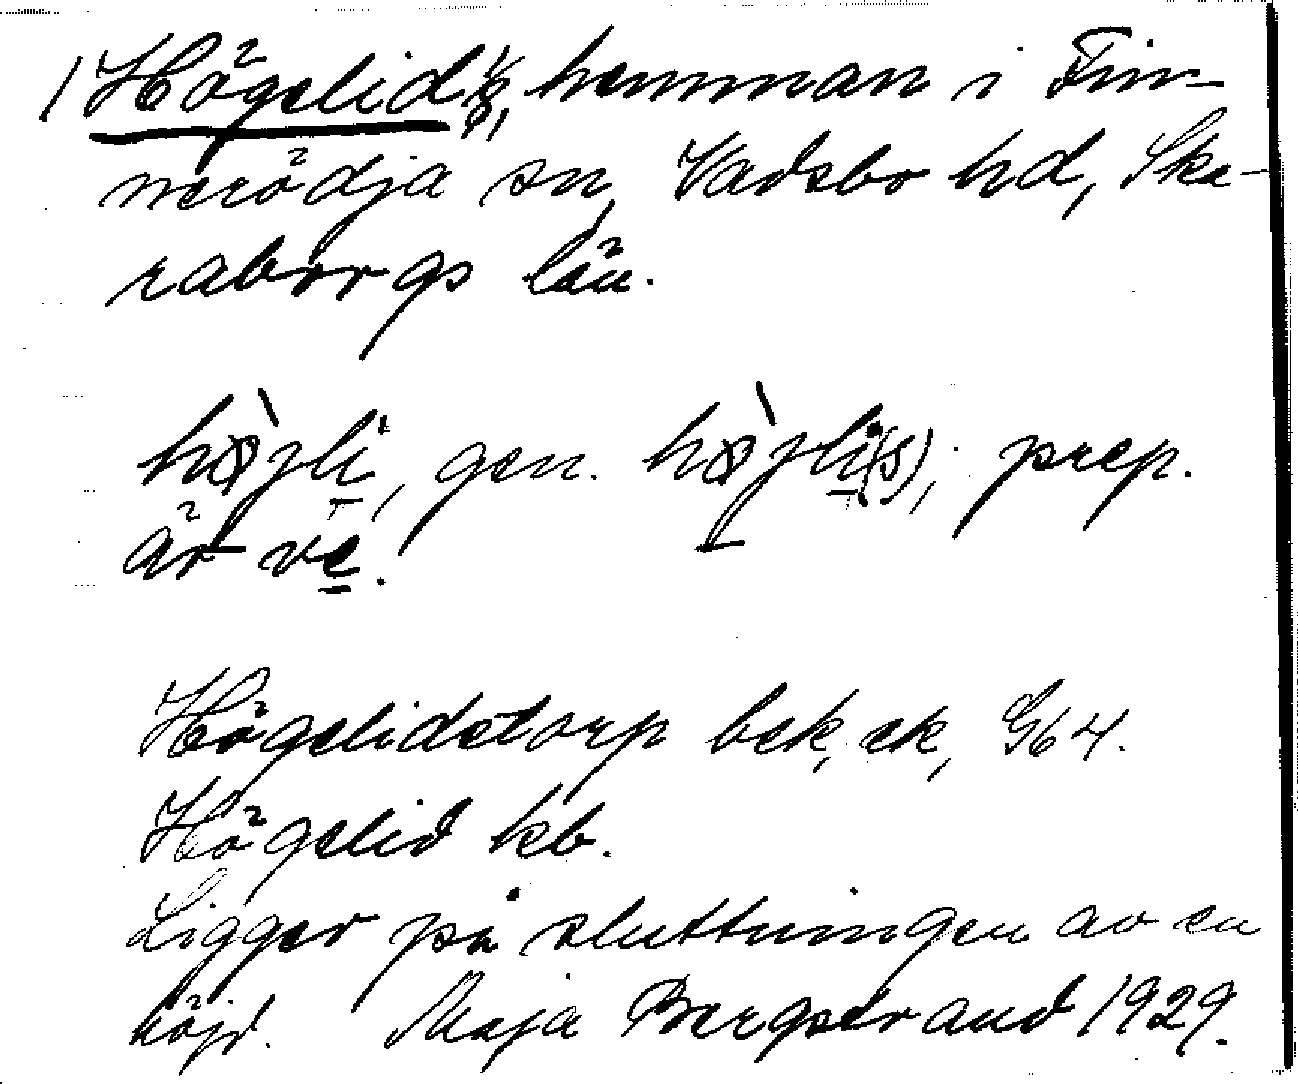 1 Högelid 1/8, hemman i Fin-
nerödja sn, Vadsbo hd, Ska-
raborgs län.
hø̀jli, gen. hø̀jli(s); prep.
är ve.
Högelidstorp bek, ek, G 64.
Högelid kb.
Ligger på sluttningen av en
höjd. Maja Bergstrand 1929.